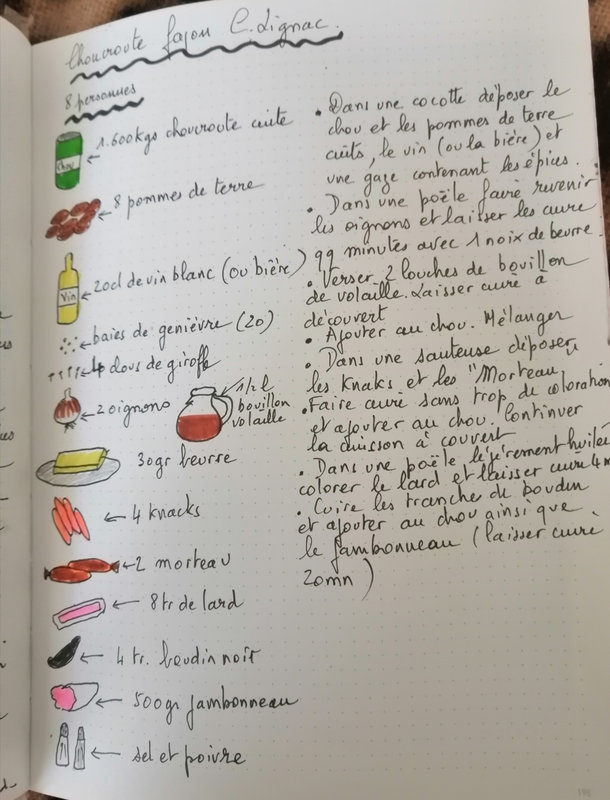 Choucroute façon C. Lignac.
8 personnes
1.600kgs choucroute cuite
Chou
8 pommes de terre
20cl de vin blanc (ou bière)
Vin
baies de genièvre (20)
4 clous de girofle
2 oignons
1/2 l
bouillon
volaille
30gr beurre
4 knacks
2 morteau
8 tr de lard
4 tr. boudin noir
500gr jambonneau
sel et poivre
• Dans une cocotte déposer le
chou et les pommes de terre
cuits, le vin (ou la bière) et
une gaze contenant les épices.
• Dans une poële faire revenir
les oignons et laisser les cuire
qq minutes avec 1 noix de beurre
• Verser 2 louches de bouillon
de volaille. Laisser cuire à
découvert
• Ajouter au chou. Mélanger
• Dans une sauteuse déposer
les Knaks et les "Morteau"
• Faire cuire sans trop de coloration
et ajouter au chou. Continuer
la cuisson à couvert
• Dans une poële légèrement huilée
colorer le lard et laisser cuire 4 m
• Cuire les tranche de boudin
et ajouter au chou ainsi que
le jambonneau (laisser cuire
20mn)